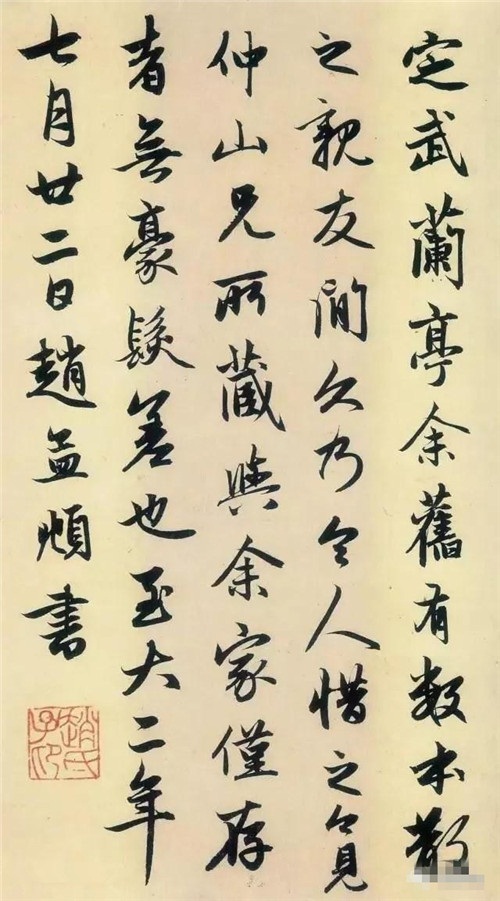 定武蘭亭余舊有數本散
之親友閒久乃令人惜之今見
仲山兄所藏與余家僅存
者無豪髮差也至大二年
七月廿二日趙孟頫書
趙氏子昂